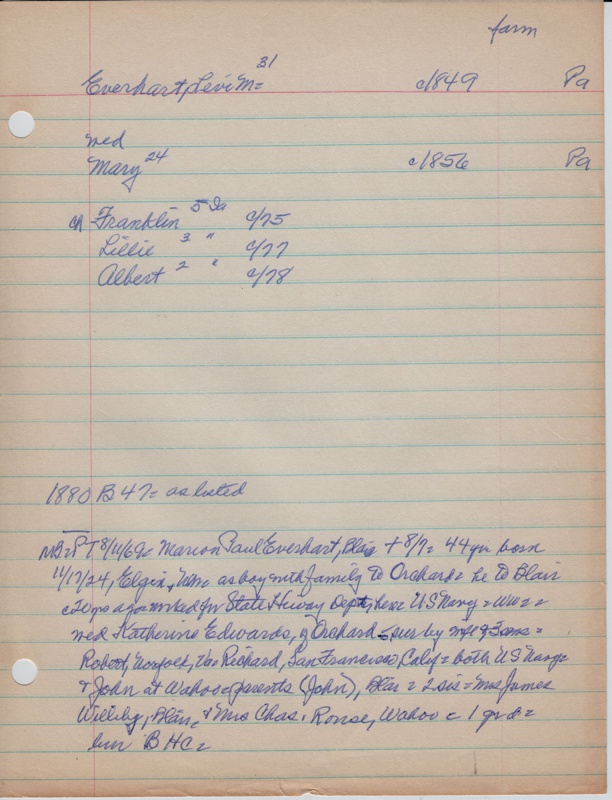 farm
Everhart, Levi M= 31 c1849 Pa
wed
Mary 24 c1856 Pa
ch Franklin 5 Ia c/75
Lillie 3 " c/77
Albert 2 " c/78
1880 B 47= as listed
8/11/69= Marion Paul Everhart, Blair + 8/7= 44 yr born
11/17/24, Elgin, as boy with family to Orchard= he to Blair
c20 yrs ago worked for State Hiway Dept, here= US Navy= WW 2=
wed Katherine Edwards, of Orchard= sur by wife 3 sons=
Robert, Norfolk, Va= Richard, San Francisco, Calif= both US Navy=
+ John at Wahoo= parents (John), Blair= 2 sis= Mrs James
Blair, + Mrs Chas. Ronse, Wahoo= 1 gr d=
bur B HC=